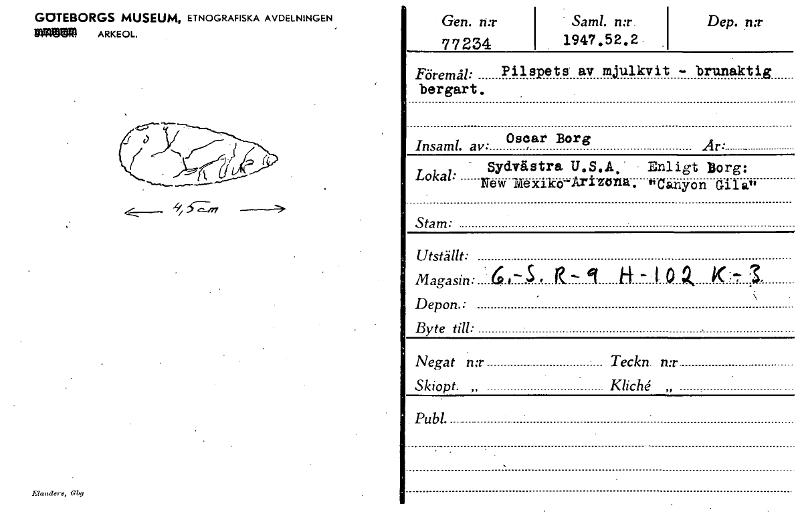 GÖTEBORGS MUSEUM, ETNOGRAFISKA AVDELNINGEN
ARKEOL.
4,5 cm
Elanders, Gbg
Gen. n:r Saml. n:r Dep. n:r
77234 1947.52.2
Föremål: Pilspets av mjulkvit - brunaktig
bergart.
Insaml. av: Oscar Borg År:
Lokal: Sydvästra U.S.A. Enligt Borg:
New Mexiko-Arizona. "Canyon Gila"
Stam:
Utställt:
Magasin: G.-S. R-9 H-102 K-3
Depon.:
Byte till:
Negat n:r Teckn n:r
Skiopt. „ Kliché „
Publ.